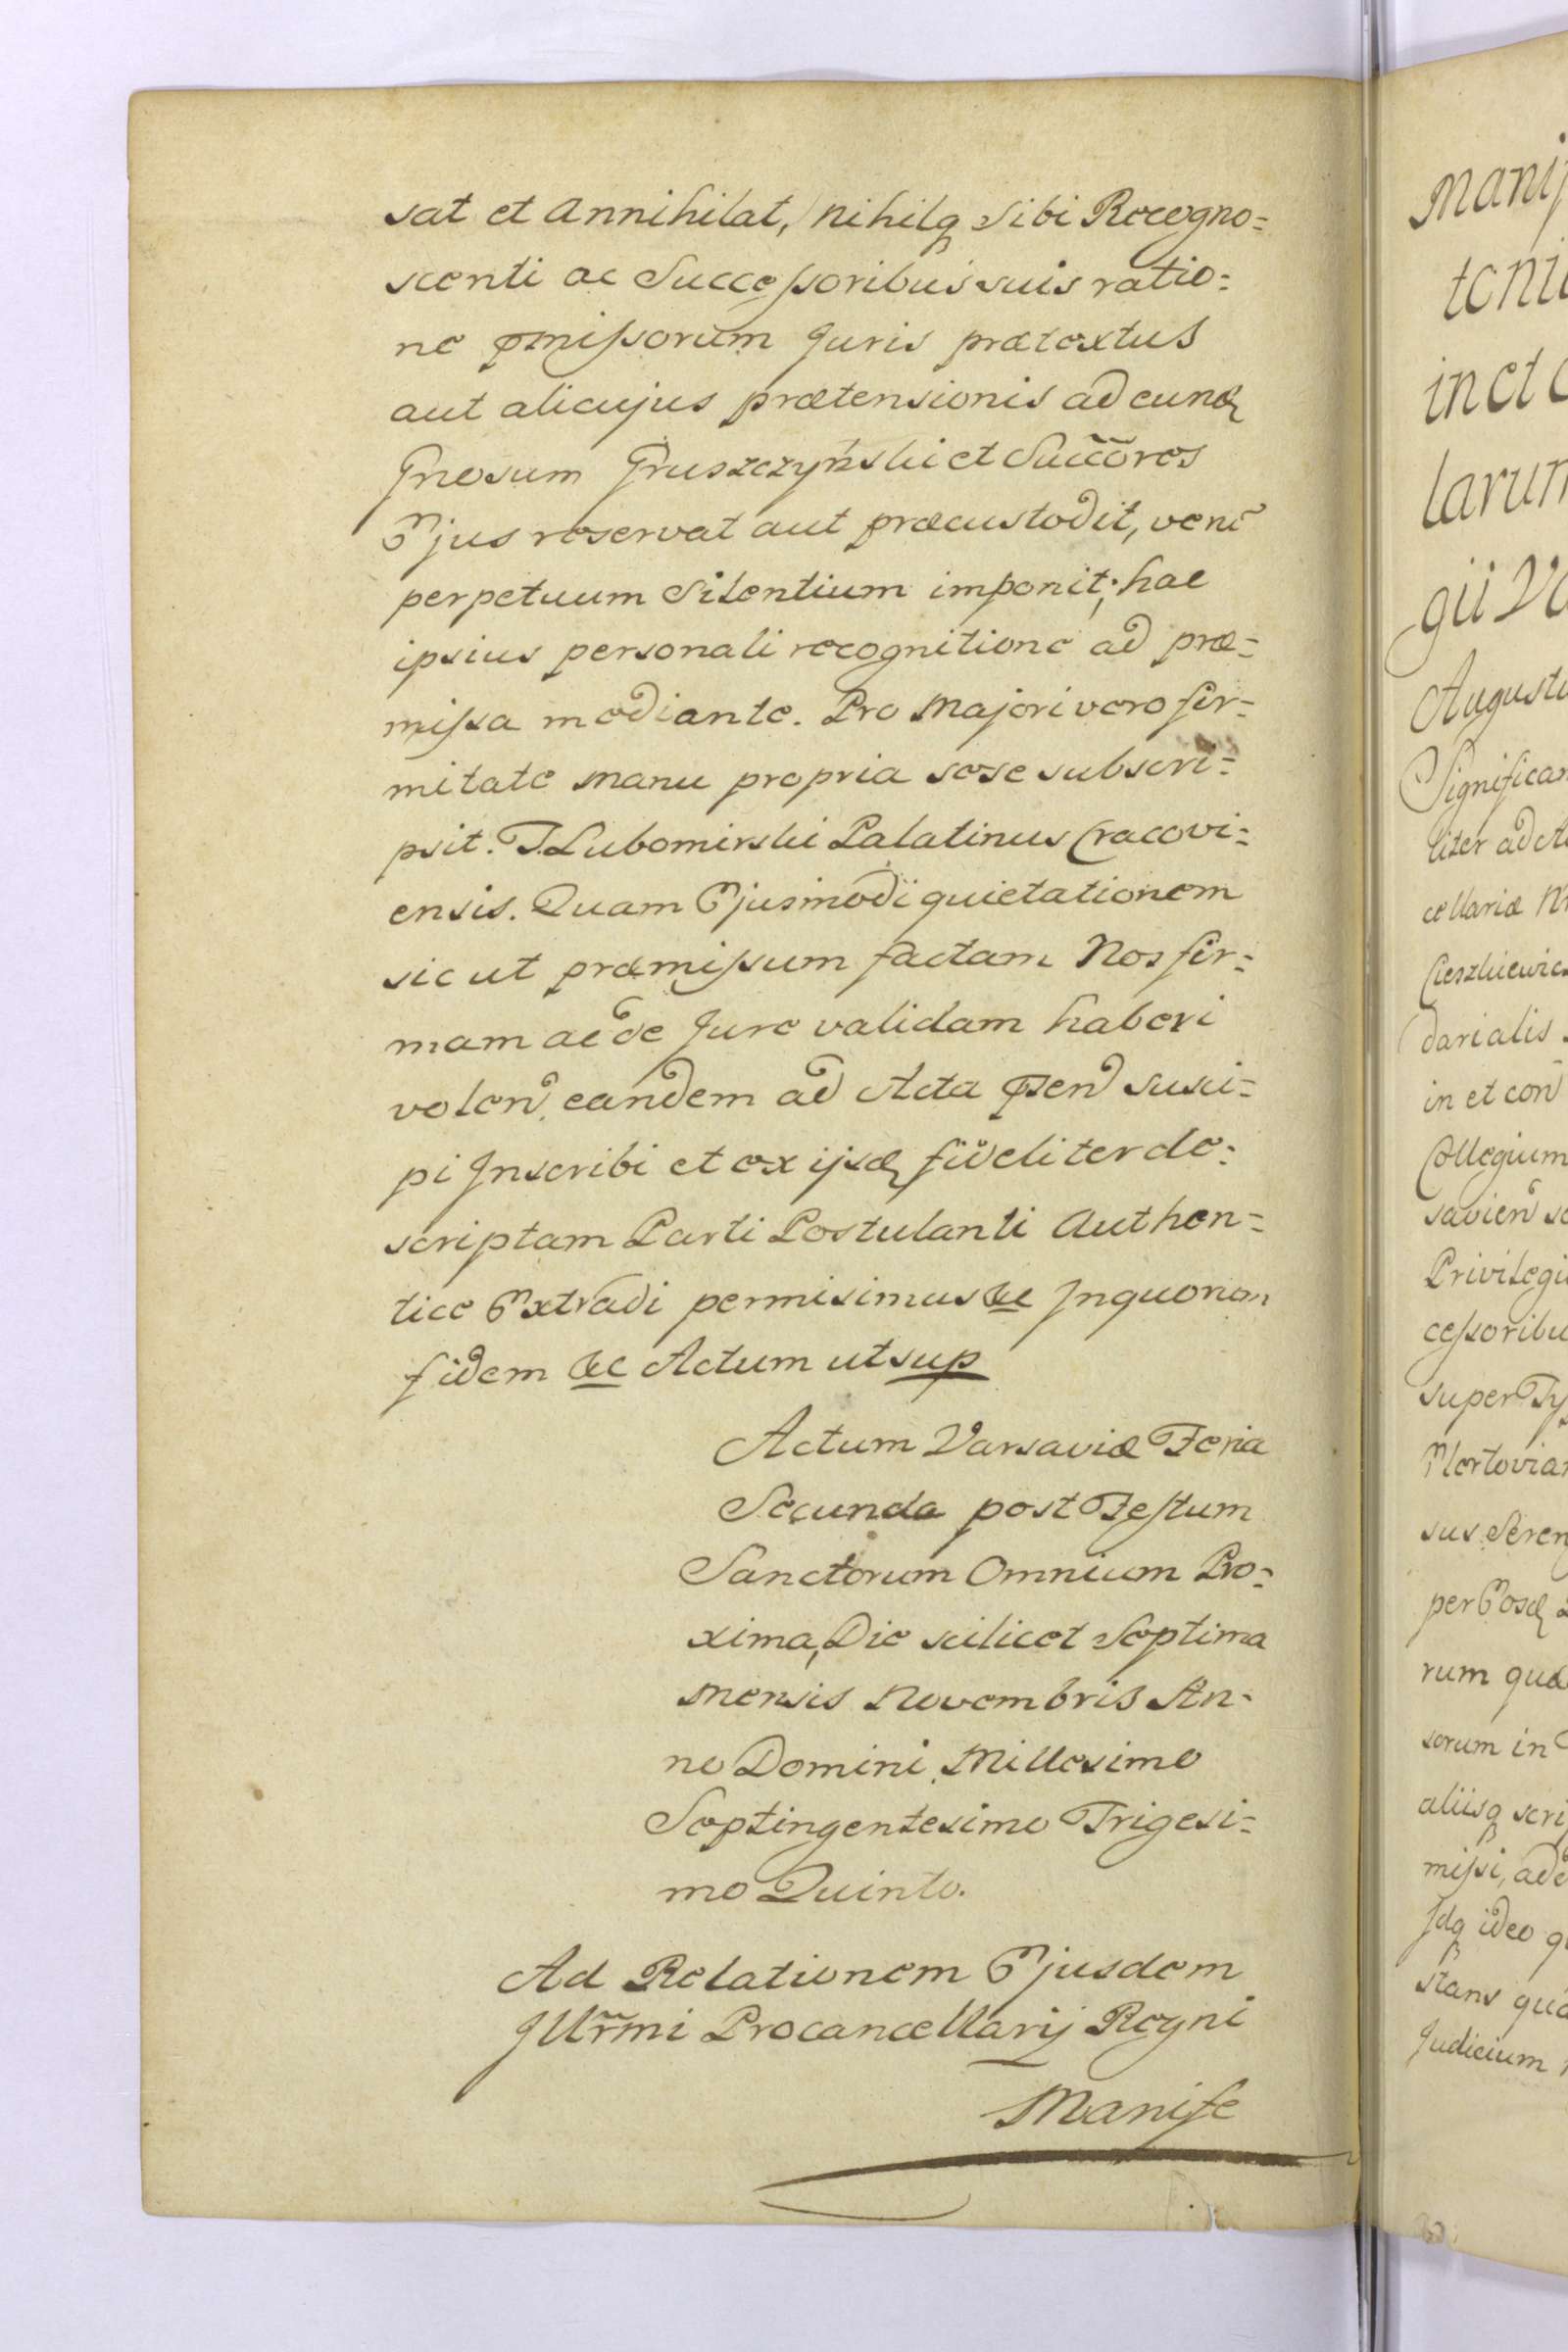 sat et Annihilat, nihilq sibi Recogno=
scenti ac Successoribus suis ratio=
ne pmissorum Juris prætextus
aut alicujus prætensionis ad eundq
Gnosum Gruszczyński et Succõres
Ejus reservat aut præcustodit, veru
perpetuum Silentium imponit; hac
ipsius personali recognitione ad præ=
missa mediante. Pro Majori vero fir=
mitate manu propria sese subscri=
psit. T. Lubomirski Palatinus Cracovi=
ensis. Quam Ejusmodi quietationem
sic ut præmissum factam Nos fir=
mam ac de Jure validam haberi
volen eandem ad Acta psen susci=
pi Inscribi et ex ijsdq fideliter de=
scriptam Parti Postulanti Authen=
tice Extradi permisimus &c Inquorum
fidem &c Actum ut sup
Actum Varsaviæ Feria
Secunda post Festum
Sanctorum Omnium Pro=
xima, Die scilicet Septima
mensis Novembris An=
no Domini Millesimo
Septingentesimo Trigesi=
mo Quinto.
Ad Relationem Ejusdem
Illr̃mi Procancellarij Regni
Manife
Manif
teni
in et c
larum
gii Va
Augusti
Significa
liter ad A
cellariæ
Cieszkiewic
darialis
in et con
Collegium
savien
Privilegi
cessoribu
super Ty
sus Seren
per Eosdq
rum quæ
sorum in
aliisq scri
missi, ade
Idq ideo q
stans qua
Judicium